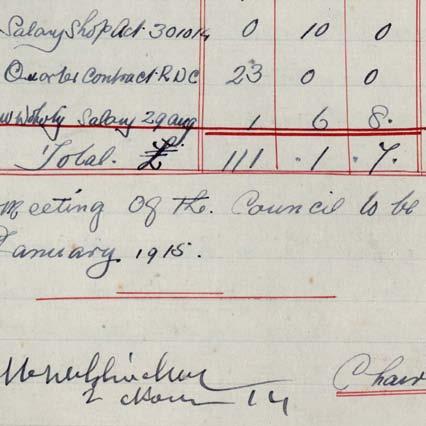 Salary Shop Act 30 10 14 0 10 0
Quarter Contract R D C 23 0 0
Salary 29 aug 1 6 8.
Total. £ 111 . 1 . 7.
meeting of the. Council to be
January 1915.
14
Chair